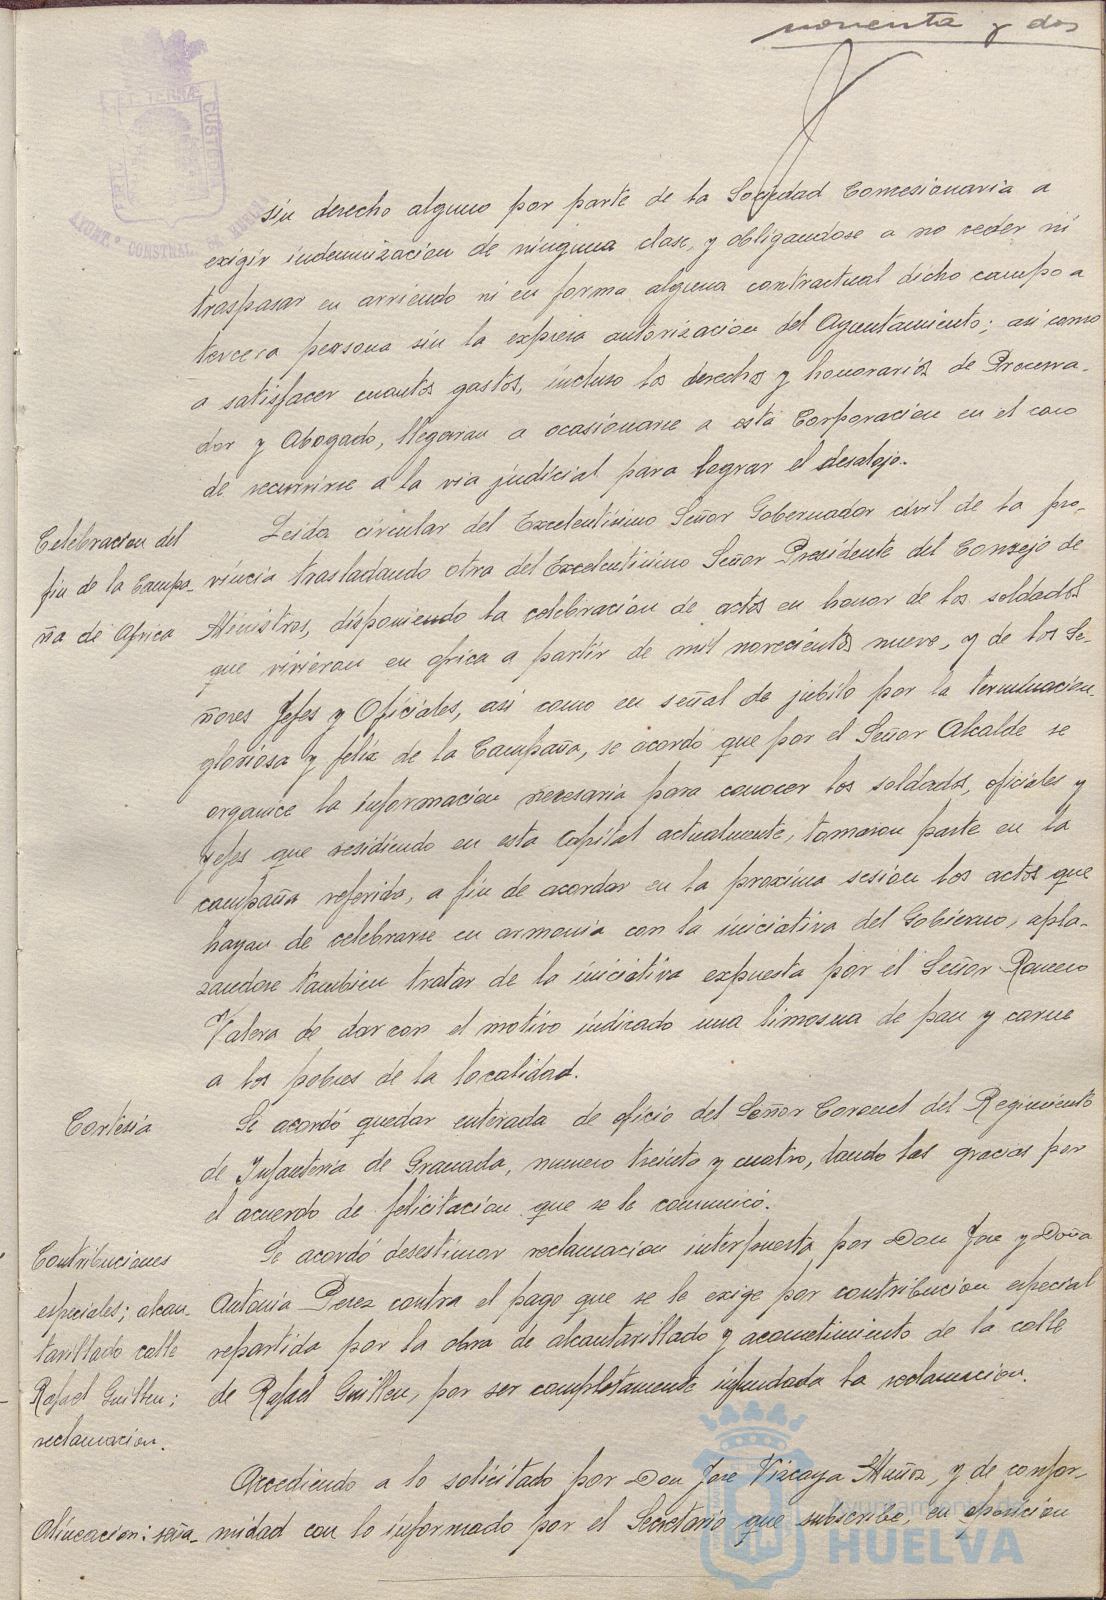 noventa y dos
PORTUS TERRAE CUSTODIA
AYUNT.º CONSTNAL. DE HUELVA
sin derecho alguno por parte de la Sociedad Concesionaria a
exigir indemnizacion de ninguna clase, y obligandose a no ceder ni
traspasar en arriendo ni en forma alguna contractual dicho campo a
tercera persona sin la expresa autorizacion del Ayuntamiento; asi como
a satisfacer cuantos gastos, incluso los derechos y honorarios de Procura-
dor y Abogado, llegaran a ocasionarse a esta Corporacion en el caso
de recurrirse a la via judicial para lograr el desalojo.
Celebracion del
fin de la Campa-
ña de Africa
Leida circular del Excelentisimo Señor Gobernador civil de la pro-
vincia trasladando otra del Excelentisimo Señor Presidente del Consejo de
Ministros, disponiendo la celebracion de actos en honor de los soldados
que vivieran en africa a partir de mil novecientos nueve, y de los Se-
ñores Jefes y Oficiales, asi como en señal de jubilo por la terminacion
gloriosa y feliz de la Campaña, se acordó que por el Señor Alcalde se
organice la informacion necesaria para conocer los soldados, oficiales y
jefes que residiendo en esta Capital actualmente, tomaron parte en la
campaña referida, a fin de acordar en la proxima sesion los actos que
hayan de celebrarse en armonia con la iniciativa del Gobierno, apla-
zandose tambien tratar de la iniciativa expuesta por el Señor Romero
Valera de dar con el motivo indicado una limosna de pan y carne
a los pobres de la localidad.
Cortesia
Se acordó quedar enterada de oficio del Señor Coronel del Regimiento
de Infanteria de Granada, numero treinta y cuatro, dando las gracias por
el acuerdo de felicitacion que se le comunicó.
Contribuciones
especiales; alcan-
tarillado calle
Rafael Guillen;
reclamacion.
Se acordó desestimar reclamacion interpuesta por Don Jose y Doña
Antonia Perez contra el pago que se le exige por contribucion especial
repartida por la obra de alcantarillado y acometimiento de la calle
de Rafael Guillen, por ser completamente infundada la reclamacion.
Accediendo a lo solicitado por Don Jose Vizcaya Muñoz, y de confor-
Alineacion: seña-
midad con lo informado por el Secretario que subscribe, en oposicion
Ayuntamiento de
HUELVA